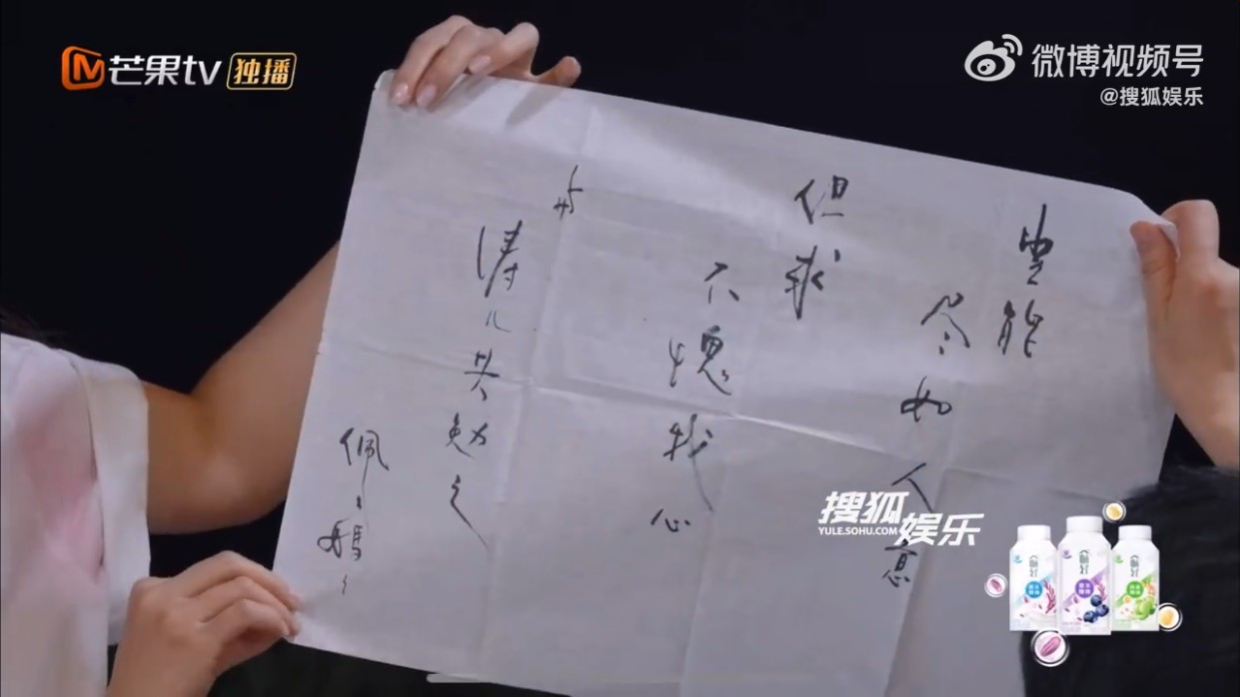 芒果tv 独播
微博视频号
@搜狐娱乐
豈能
尽如人意
但求
不愧我心
与
涛儿共勉之
佩〻媽〻
搜狐娱乐
YULE.SOHU.COM